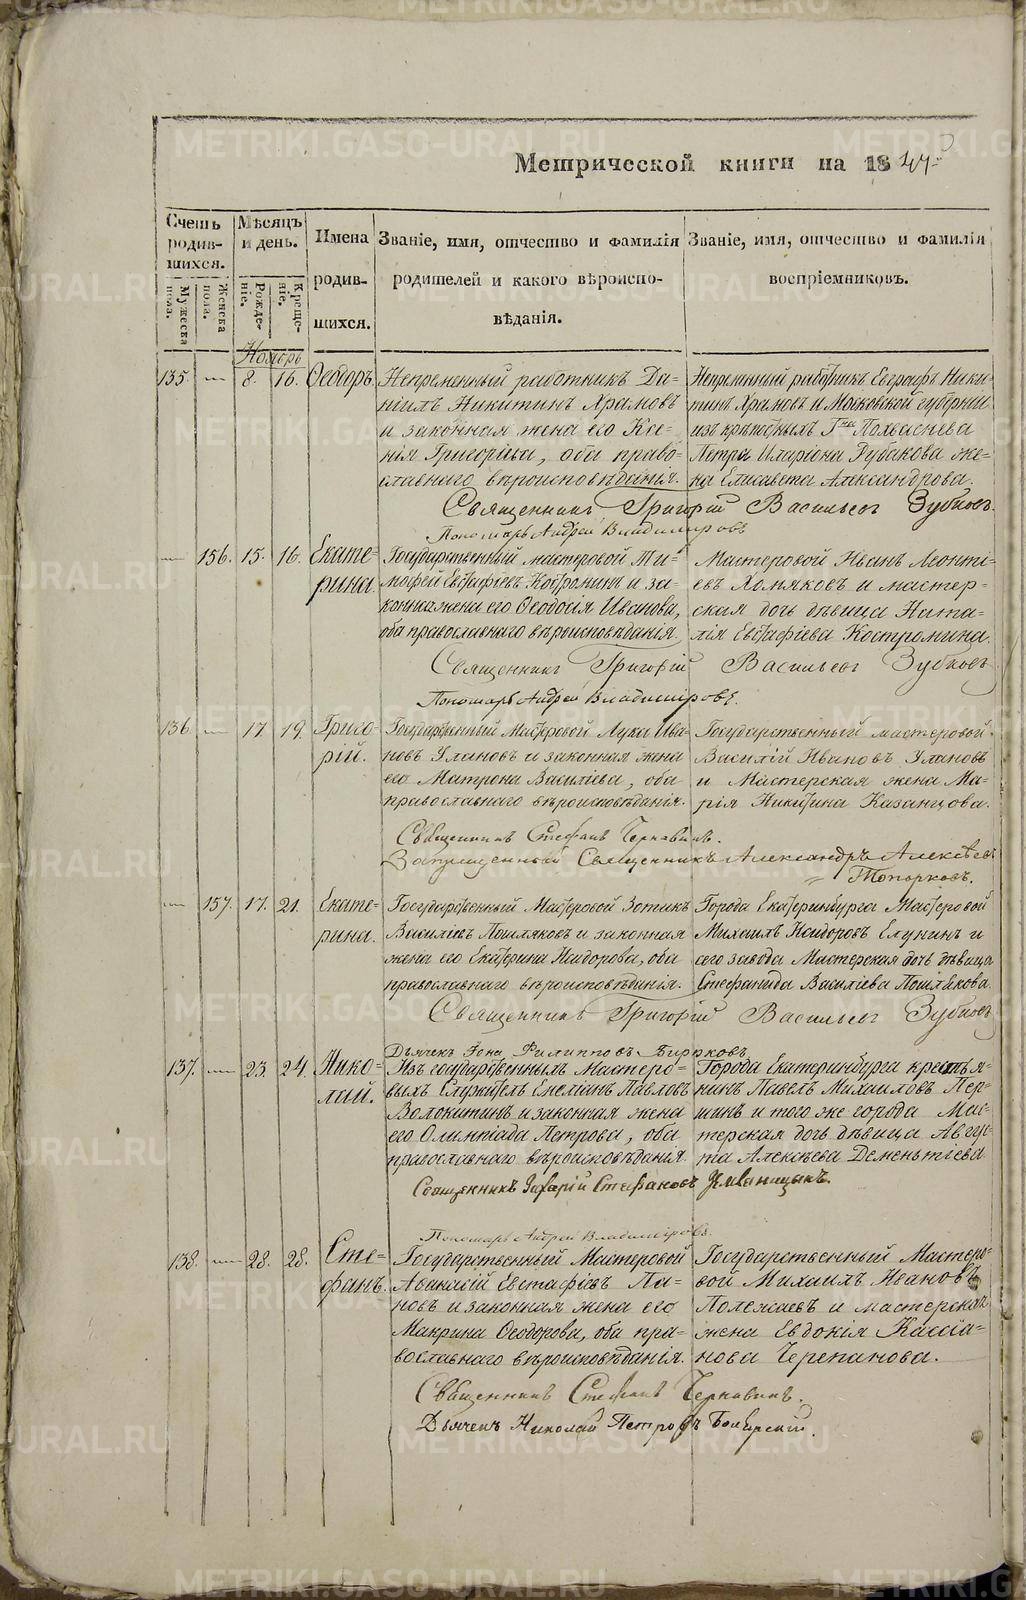 METRIKI.GASO-URAL.RU
Метрической книги на 18
Счетъ родив-шихся.
Мужеска пола.
Женска пола.
Мѣсяцъ и день.
Рожде-ніе.
Креще-ніе.
Имена родив-шихся.
Званіе, имя, отчество и фамилія родителей и какого вѣроиспо-вѣданія.
Званіе, имя, отчество и фамилія воспріемниковъ.
Ноябрь
135. — 8. 16. Ѳеодоръ.
Непременный работникъ Да=
ніилъ Никитинъ Храмовъ
и законная жена его Ксе=
нія Григорьева, оба право=
славнаго вѣроисповѣданія.
Непременный работникъ Евграфъ Ники=
тинъ Храмовъ и Московской губерніи
изъ крѣпостныхъ Гна Похвиснева
Петра Иларіона Рубакова же=
на Елисавета Александрова.
Священникъ Григорій Васильевъ Зубковъ.
Пономарь Андрей Владимировъ
— 156. 15. 16. Екате=
рина.
Государственный мастеровой Ти=
мофей Евстафіевъ Костроминъ и за=
конная жена его Ѳеодосія Иванова,
оба православнаго вѣроисповѣданія.
Мастеровой Иванъ Леонті=
евъ Хомяковъ и мастер=
ская дочь дѣвица Ната=
лія Евстафіева Костромина.
Священникъ Григорій Васильевъ Зубковъ
Пономарь Андрей Владиміровъ.
136. — 17. 19. Григо=
рій.
Государственный Мастеровой Лука Ива=
новъ Улановъ и законная жена
его Матрона Василіева, оба
православнаго вѣроисповѣданія.
Государственный мастеровой
Василій Ивановъ Улановъ
и Мастерская жена Ма=
рія Никитина Казанцова.
Священникъ Стефанъ Чернавинъ.
Запрещенный Священникъ Александръ Алексѣевъ
Топорковъ.
— 157. 17. 21. Екате=
рина.
Государственный Мастеровой Зотикъ
Василіевъ Пошляковъ и законная
жена его Екатерина Исидорова, оба
православнаго вѣроисповѣданія.
Города Екатеринбурга Мастеровой
Михаилъ Исидоровъ Елунинъ и
сего завода Мастерская дочь дѣвица
Стефанида Василіева Пошлякова.
Священникъ Григорій Васильевъ Зубковъ
Дьячекъ Іона Филипповъ Бирюковъ
137. — 23. 24. Нико=
лай.
Изъ государственныхъ Мастеро=
выхъ Служитель Емеліанъ Павловъ
Волокитинъ и законная жена
его Олимпіада Петрова, оба
православнаго вѣроисповѣданія.
Города Екатеринбурга крестья=
нинъ Павелъ Михаиловъ Пер=
шинъ и того же города Мас=
терская дочь дѣвица Авгус=
та Алексѣева Деменьтіева
Священникъ Захарій Стефановъ
Пономарь Андрей Владиміровъ.
138. — 28. 28. Сте=
фанъ.
Государственный Мастеровой
Аѳанасій Евстафіевъ Па=
новъ и законная жена его
Макрина Ѳеодорова, оба пра=
вославнаго вѣроисповѣданія.
Государственный Мастеро=
вой Михаилъ Ивановъ
Полежаевъ и мастерская
жена Евдокія Кассіа=
нова Черепанова.
Священникъ Стефанъ Чернавинъ.
Дьячекъ Николай Петровъ Боярскій.